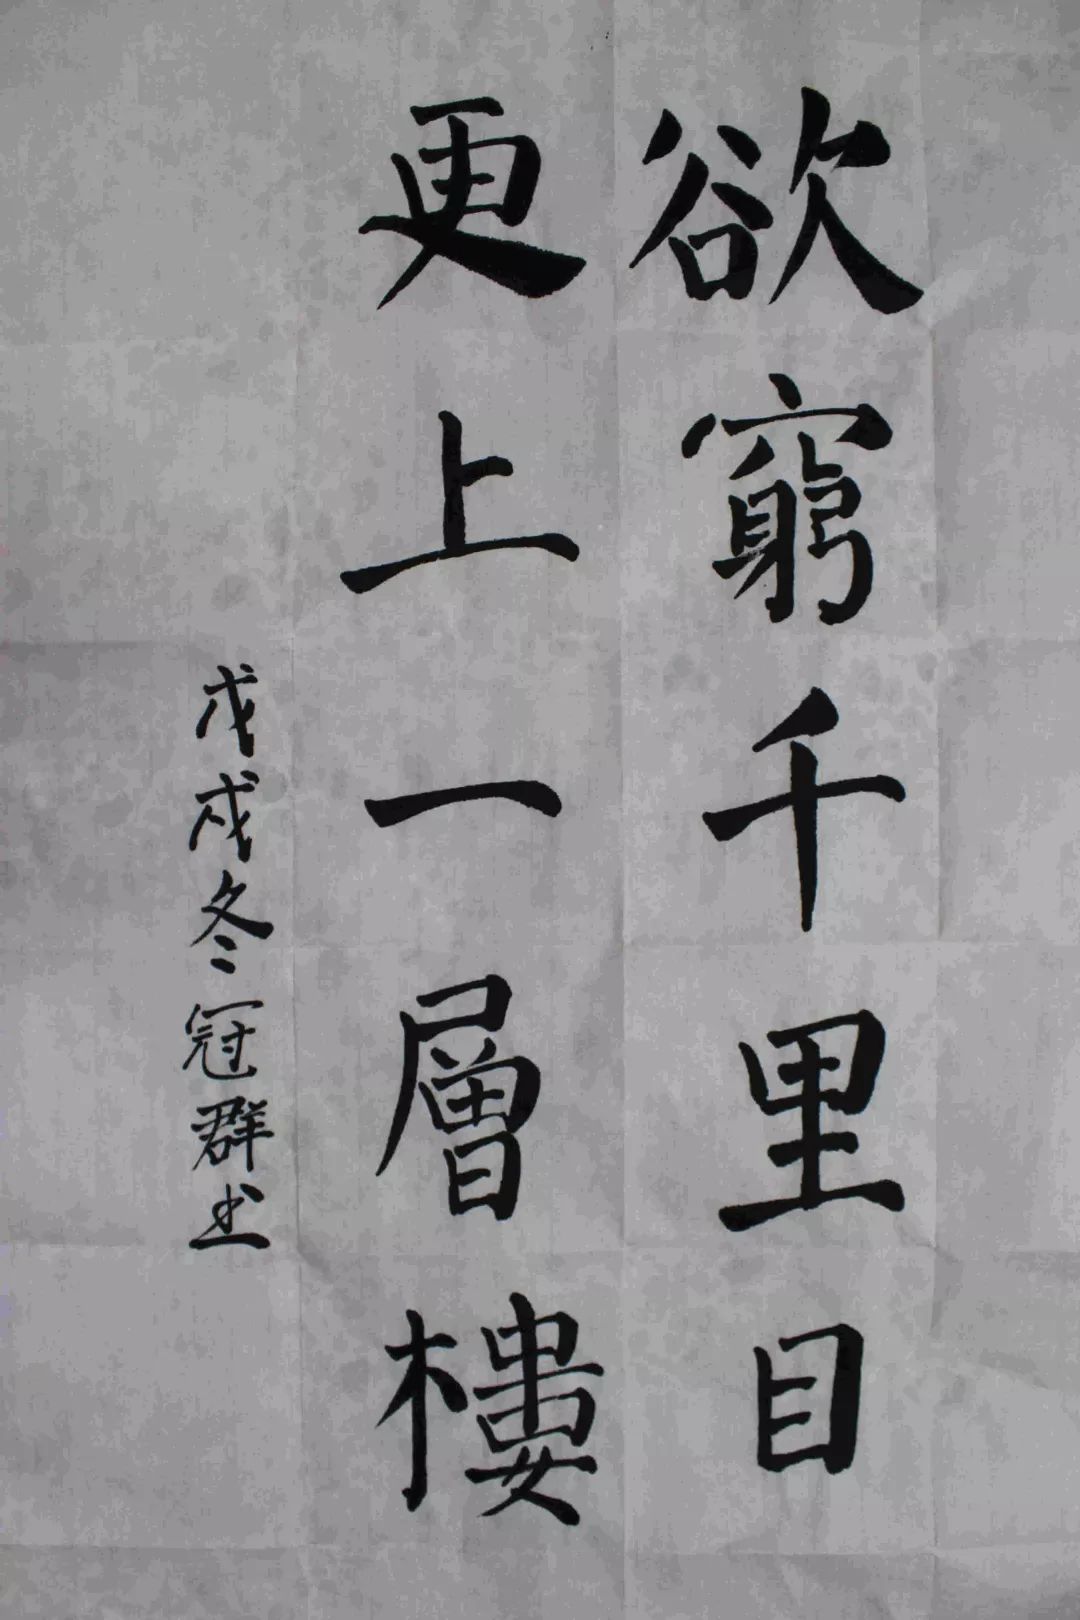 欲窮千里目
更上一層樓
戊戌冬冠群书